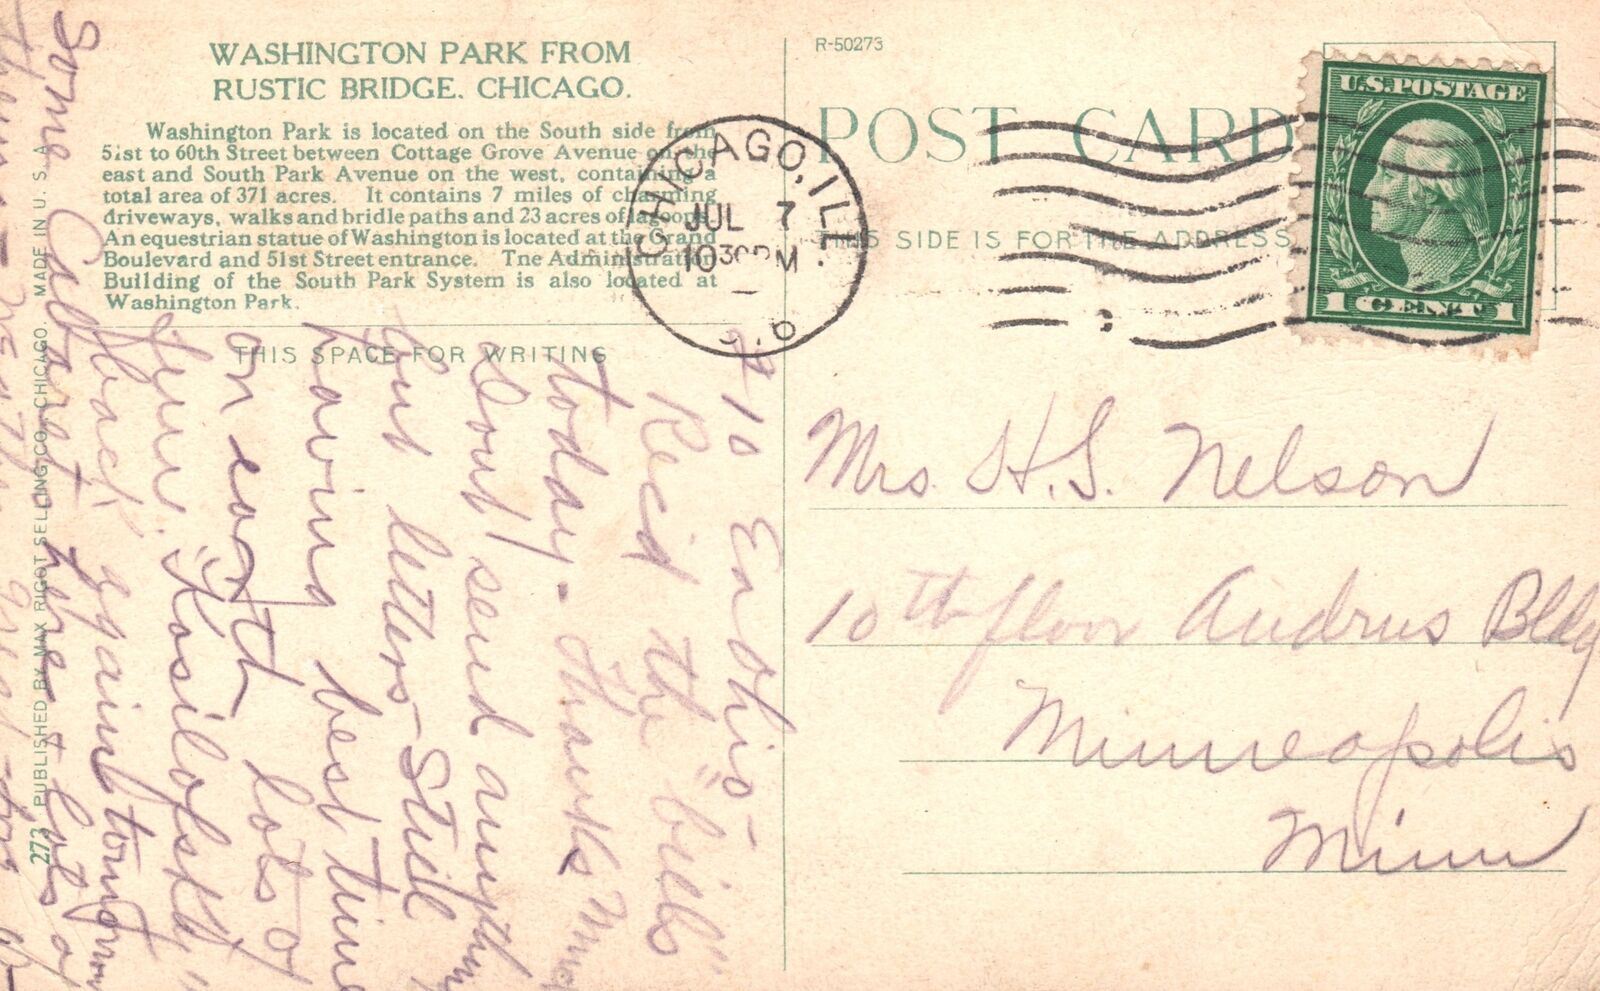 WASHINGTON PARK FROM
RUSTIC BRIDGE. CHICAGO.
Washington Park is located on the South side from
51st to 60th Street between Cottage Grove Avenue on the
east and South Park Avenue on the west, containing a
total area of 371 acres. It contains 7 miles of charming
driveways, walks and bridle paths and 23 acres of lagoons.
An equestrian statue of Washington is located at the Grand
Boulevard and 51st Street entrance. Tne Administration
Building of the South Park System is also located at
Washington Park.
THIS SPACE FOR WRITING
273 PUBLISHED BY MAX RIGOT SELLING CO., CHICAGO. MADE IN U. S. A.
R-50273
POST CARD
THIS SIDE IS FOR THE ADDRESS
CHICAGO, ILL.
JUL 7
1030PM
U.S. POSTAGE
1 CENT 1
Mrs. H. S. Nelson
10th floor Andrus Bldg
Minneapolis
Minn
710 E. Ohio -
Rec'd the "bills"
today - Thanks
Don't send any
but letters - Still
having best time
on earth - lots of
fun. 
back again tomorrow
Some Cabaret here + lots of